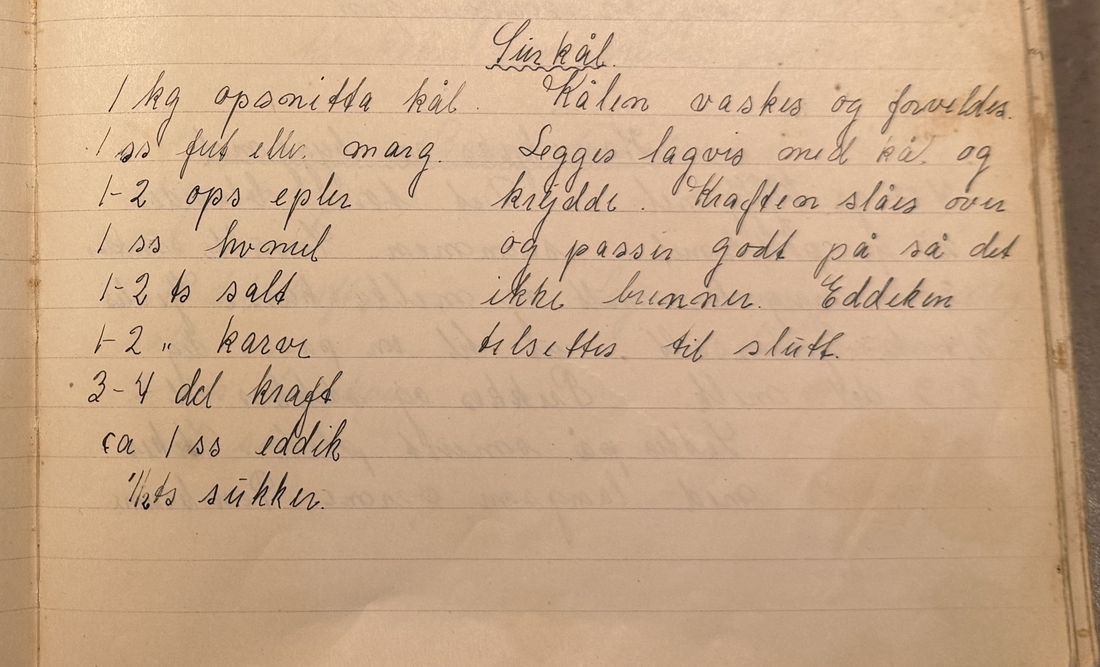 Surkål.
1 kg opsnitta kål.
1 ss fett ell. marg.
1-2 ops epler
1 ss hvmel
1-2 ts salt
1-2 " karve
3-4 del kraft
ca 1 ss eddik
1 1/2 ts sukker.
Kålen vaskes og forvelles.
Legges lagvis med kål og
krydde. Kraften slåes over
og passer godt på så det
ikke brenner. Eddeken
telsettes til slutt.